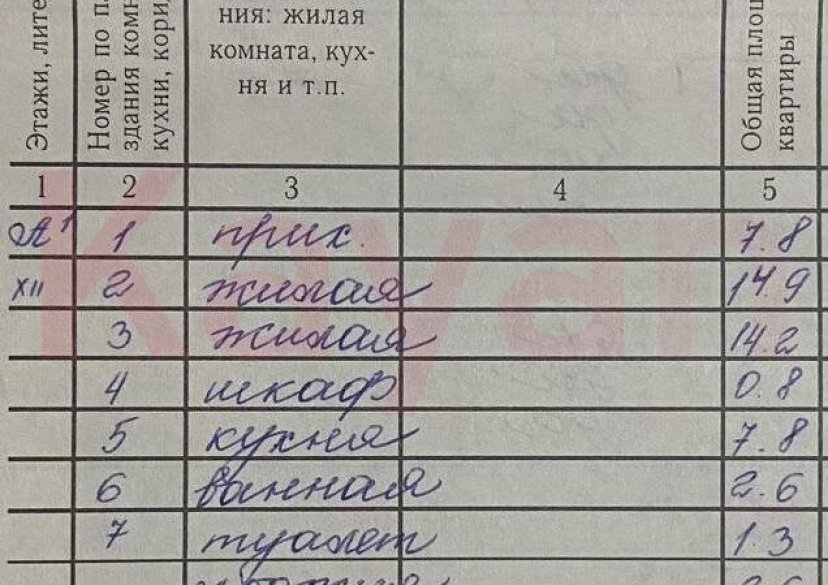 Этажи, лите
Номер по п
здания комн
кухни, корид
ния: жилая
комната, кух-
ня и т.п.
Общая площ
квартиры
1 2 3 4 5
А¹ 1 прих. 7.8
XII 2 жилая 14.9
3 жилая 14.2
4 шкаф 0.8
5 кухня 7.8
6 ванная 2.6
7 туалет 1.3
Kayan